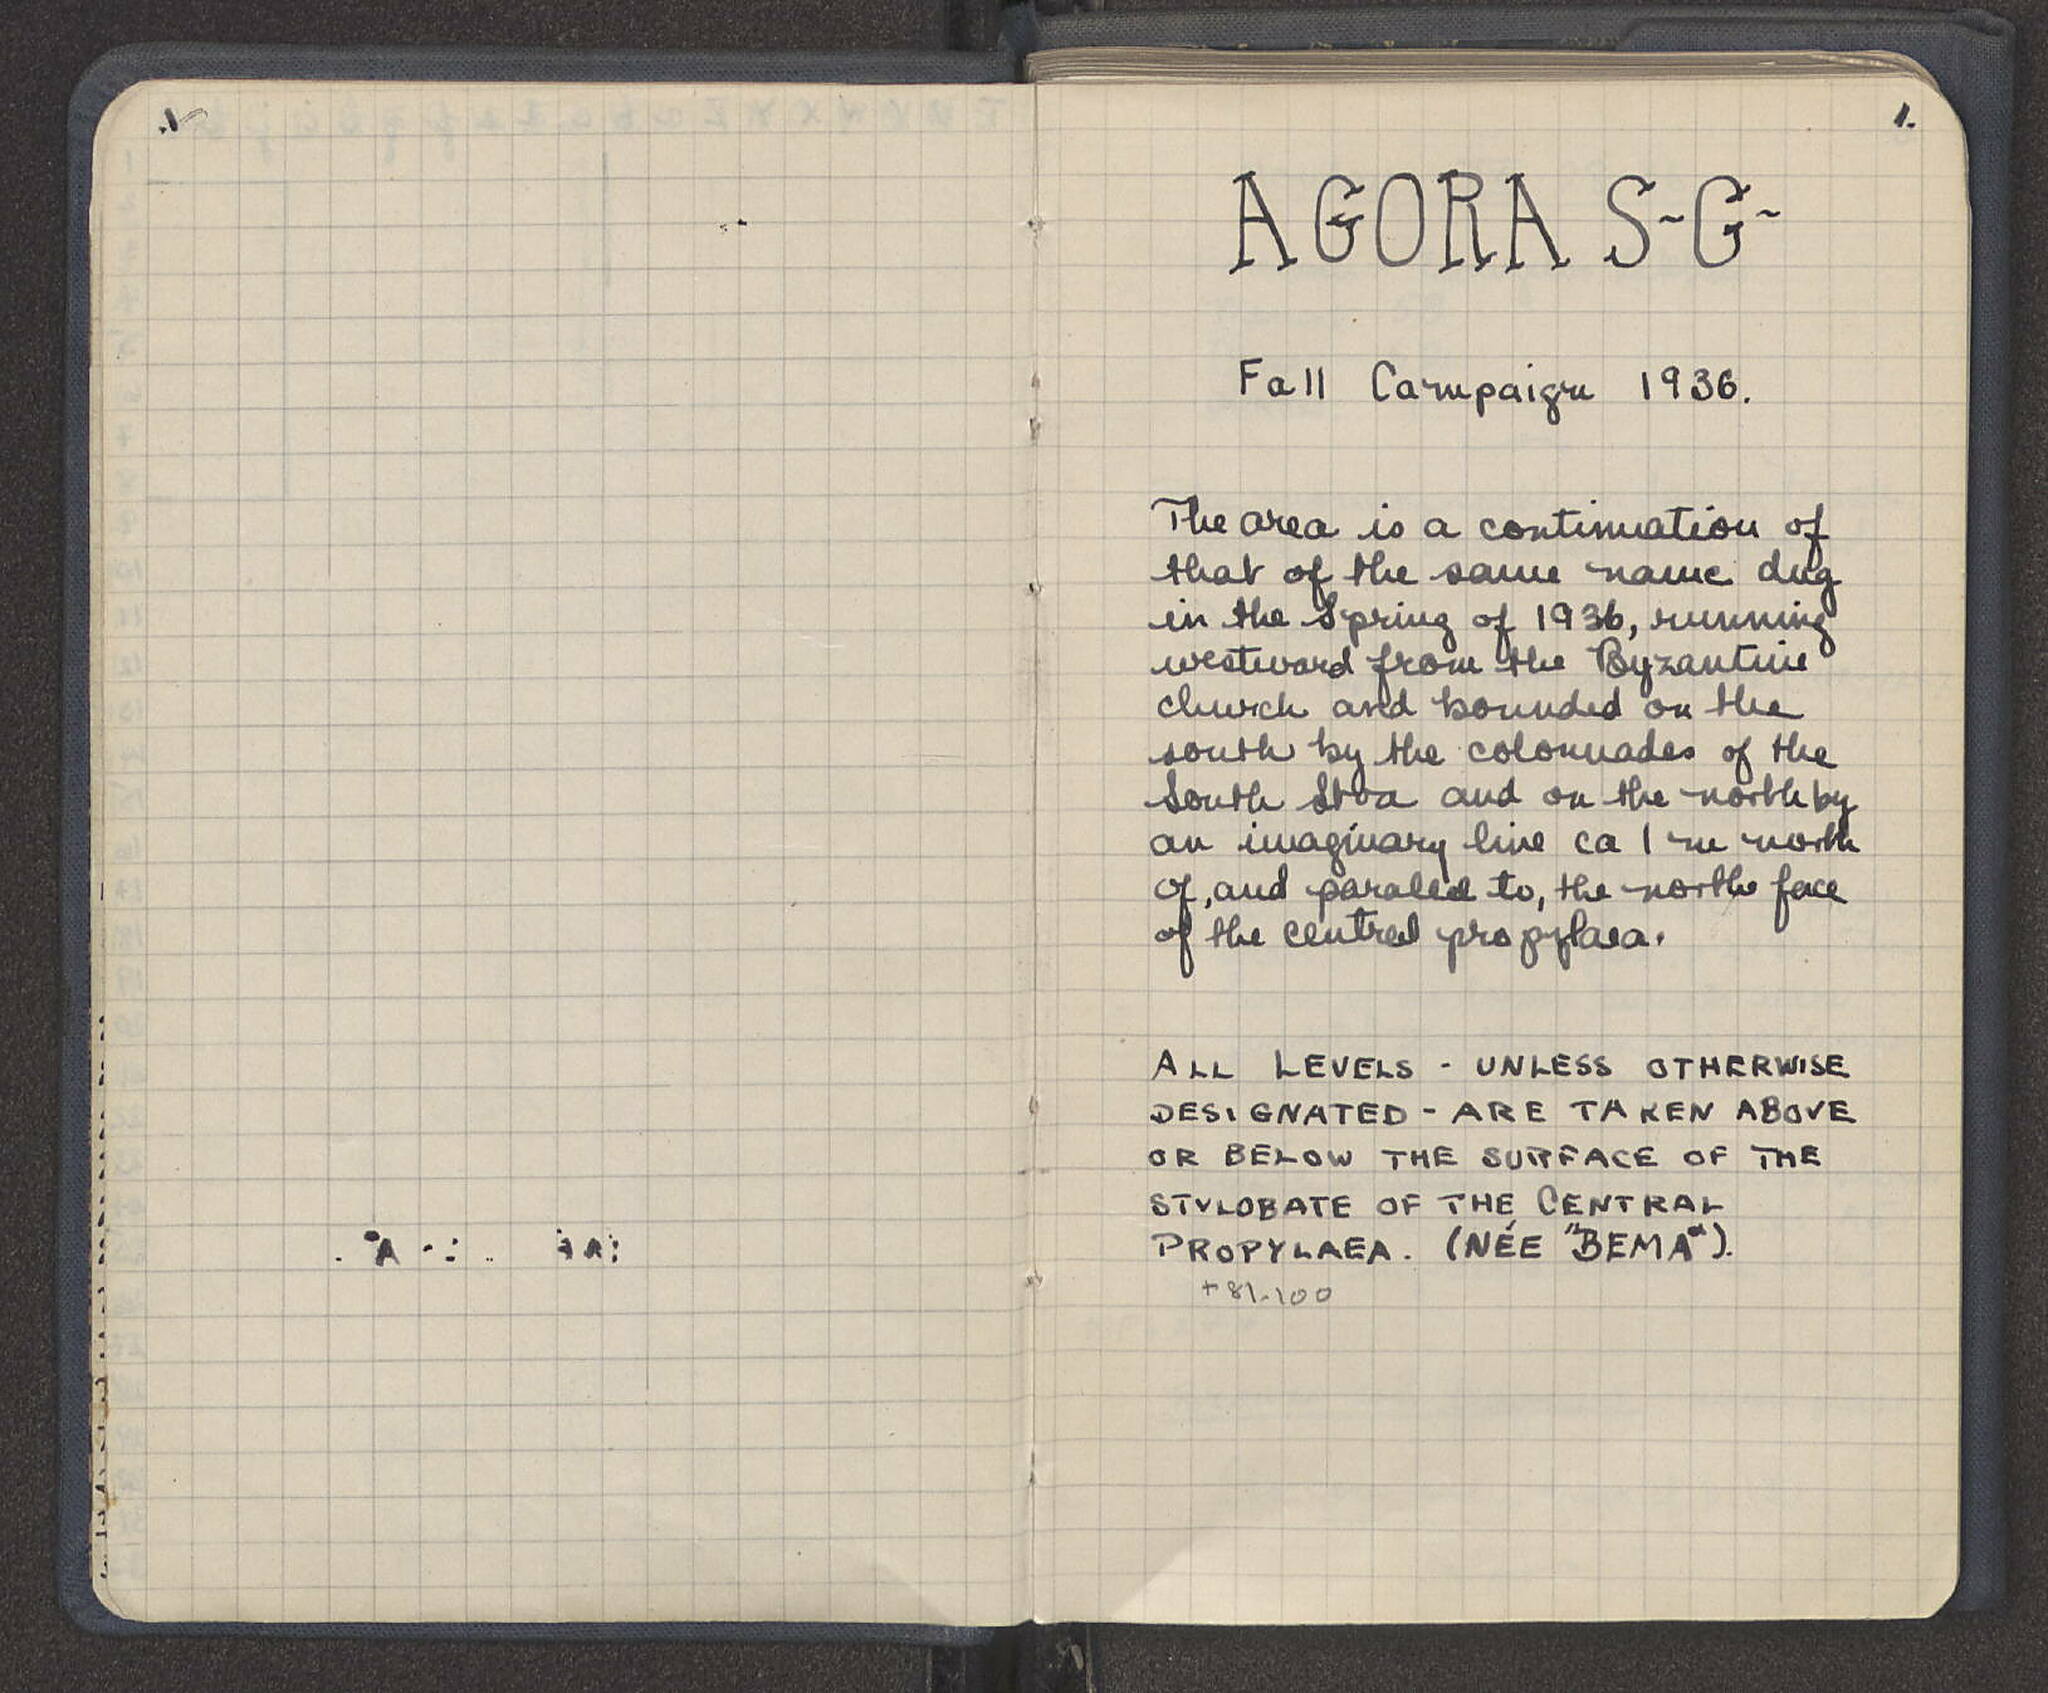 1.
AGORA S-G-
Fall Campaign 1936.
The area is a continuation of
that of the same name dug
in the Spring of 1936, running
westward from the Byzantine
church and bounded on the
south by the colonnades of the
South Stoa and on the north by
an imaginary line ca 1 m north
of, and paralled to, the north face
of the central propylaea.
ALL LEVELS - UNLESS OTHERWISE
DESIGNATED - ARE TAKEN ABOVE
OR BELOW THE SURFACE OF THE
STYLOBATE OF THE CENTRAL
PROPYLAEA. (NÉE "BEMA").
+81.100